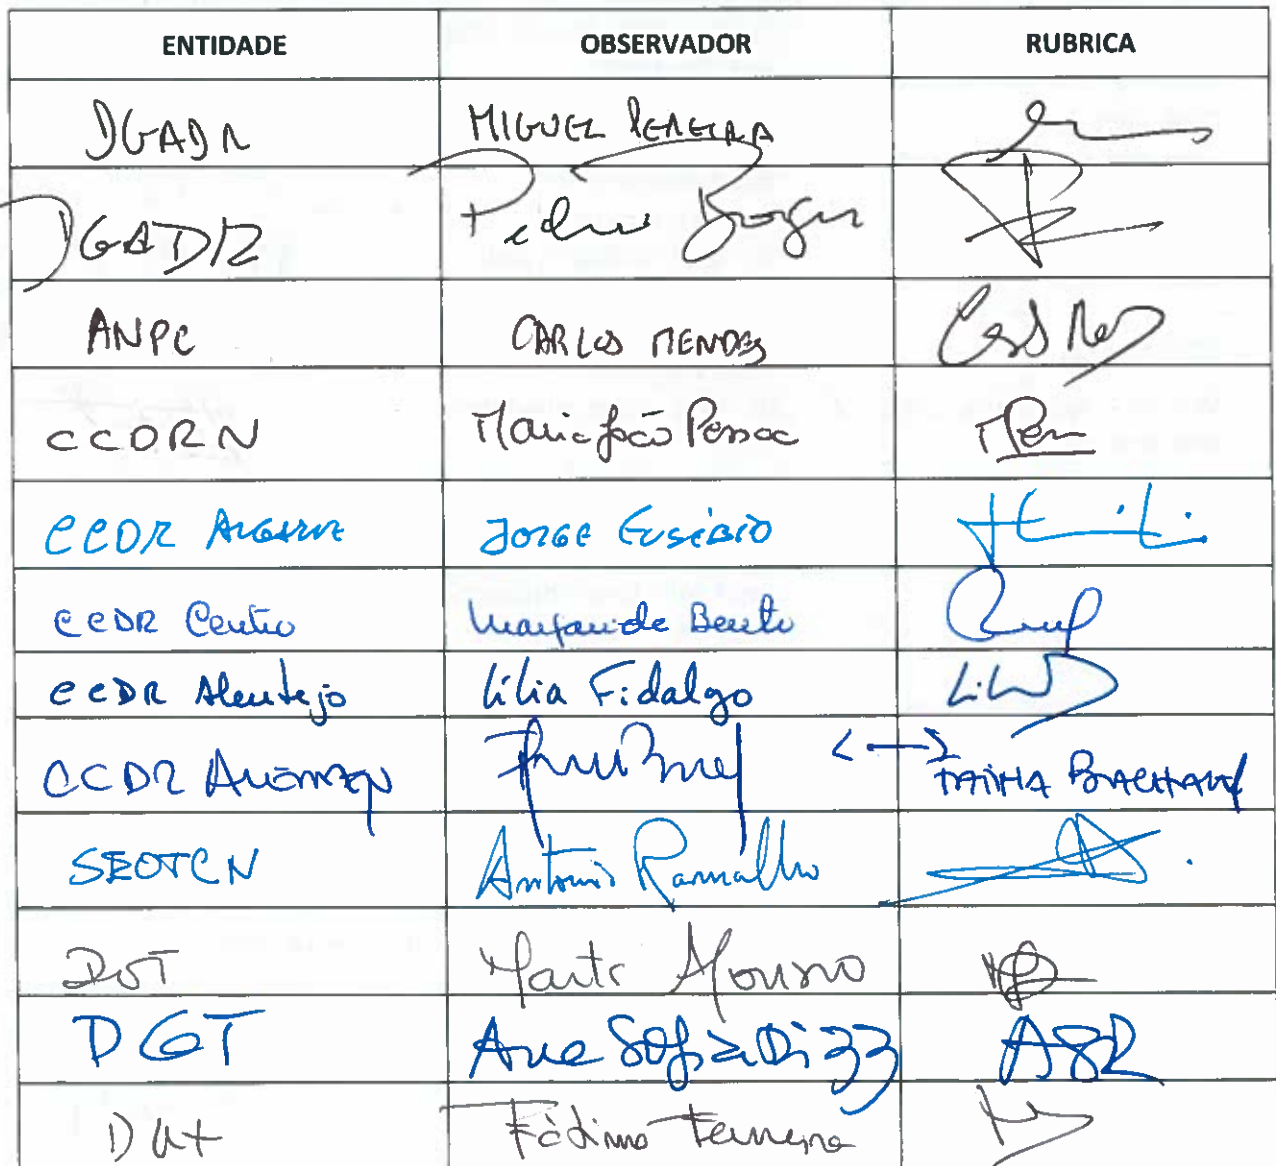 ENTIDADE OBSERVADOR RUBRICA
DGADR MIGUEL PEREIRA
DGADR Pedro Borges
ANPC CARLOS MENDES
CCDRN Maria João Pessoa
CCDR ALGARVE JORGE EUSÉBIO
CCDR Centro Margarida Bento
CCDR Alentejo Lília Fidalgo
CCDR
SEOTCN António Ramalho
DGT Marta Afonso
DGT Ana Sofia
DGT Fátima Ferreira